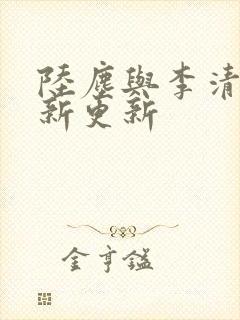 陸塵與李清
新更新
金亨鎰